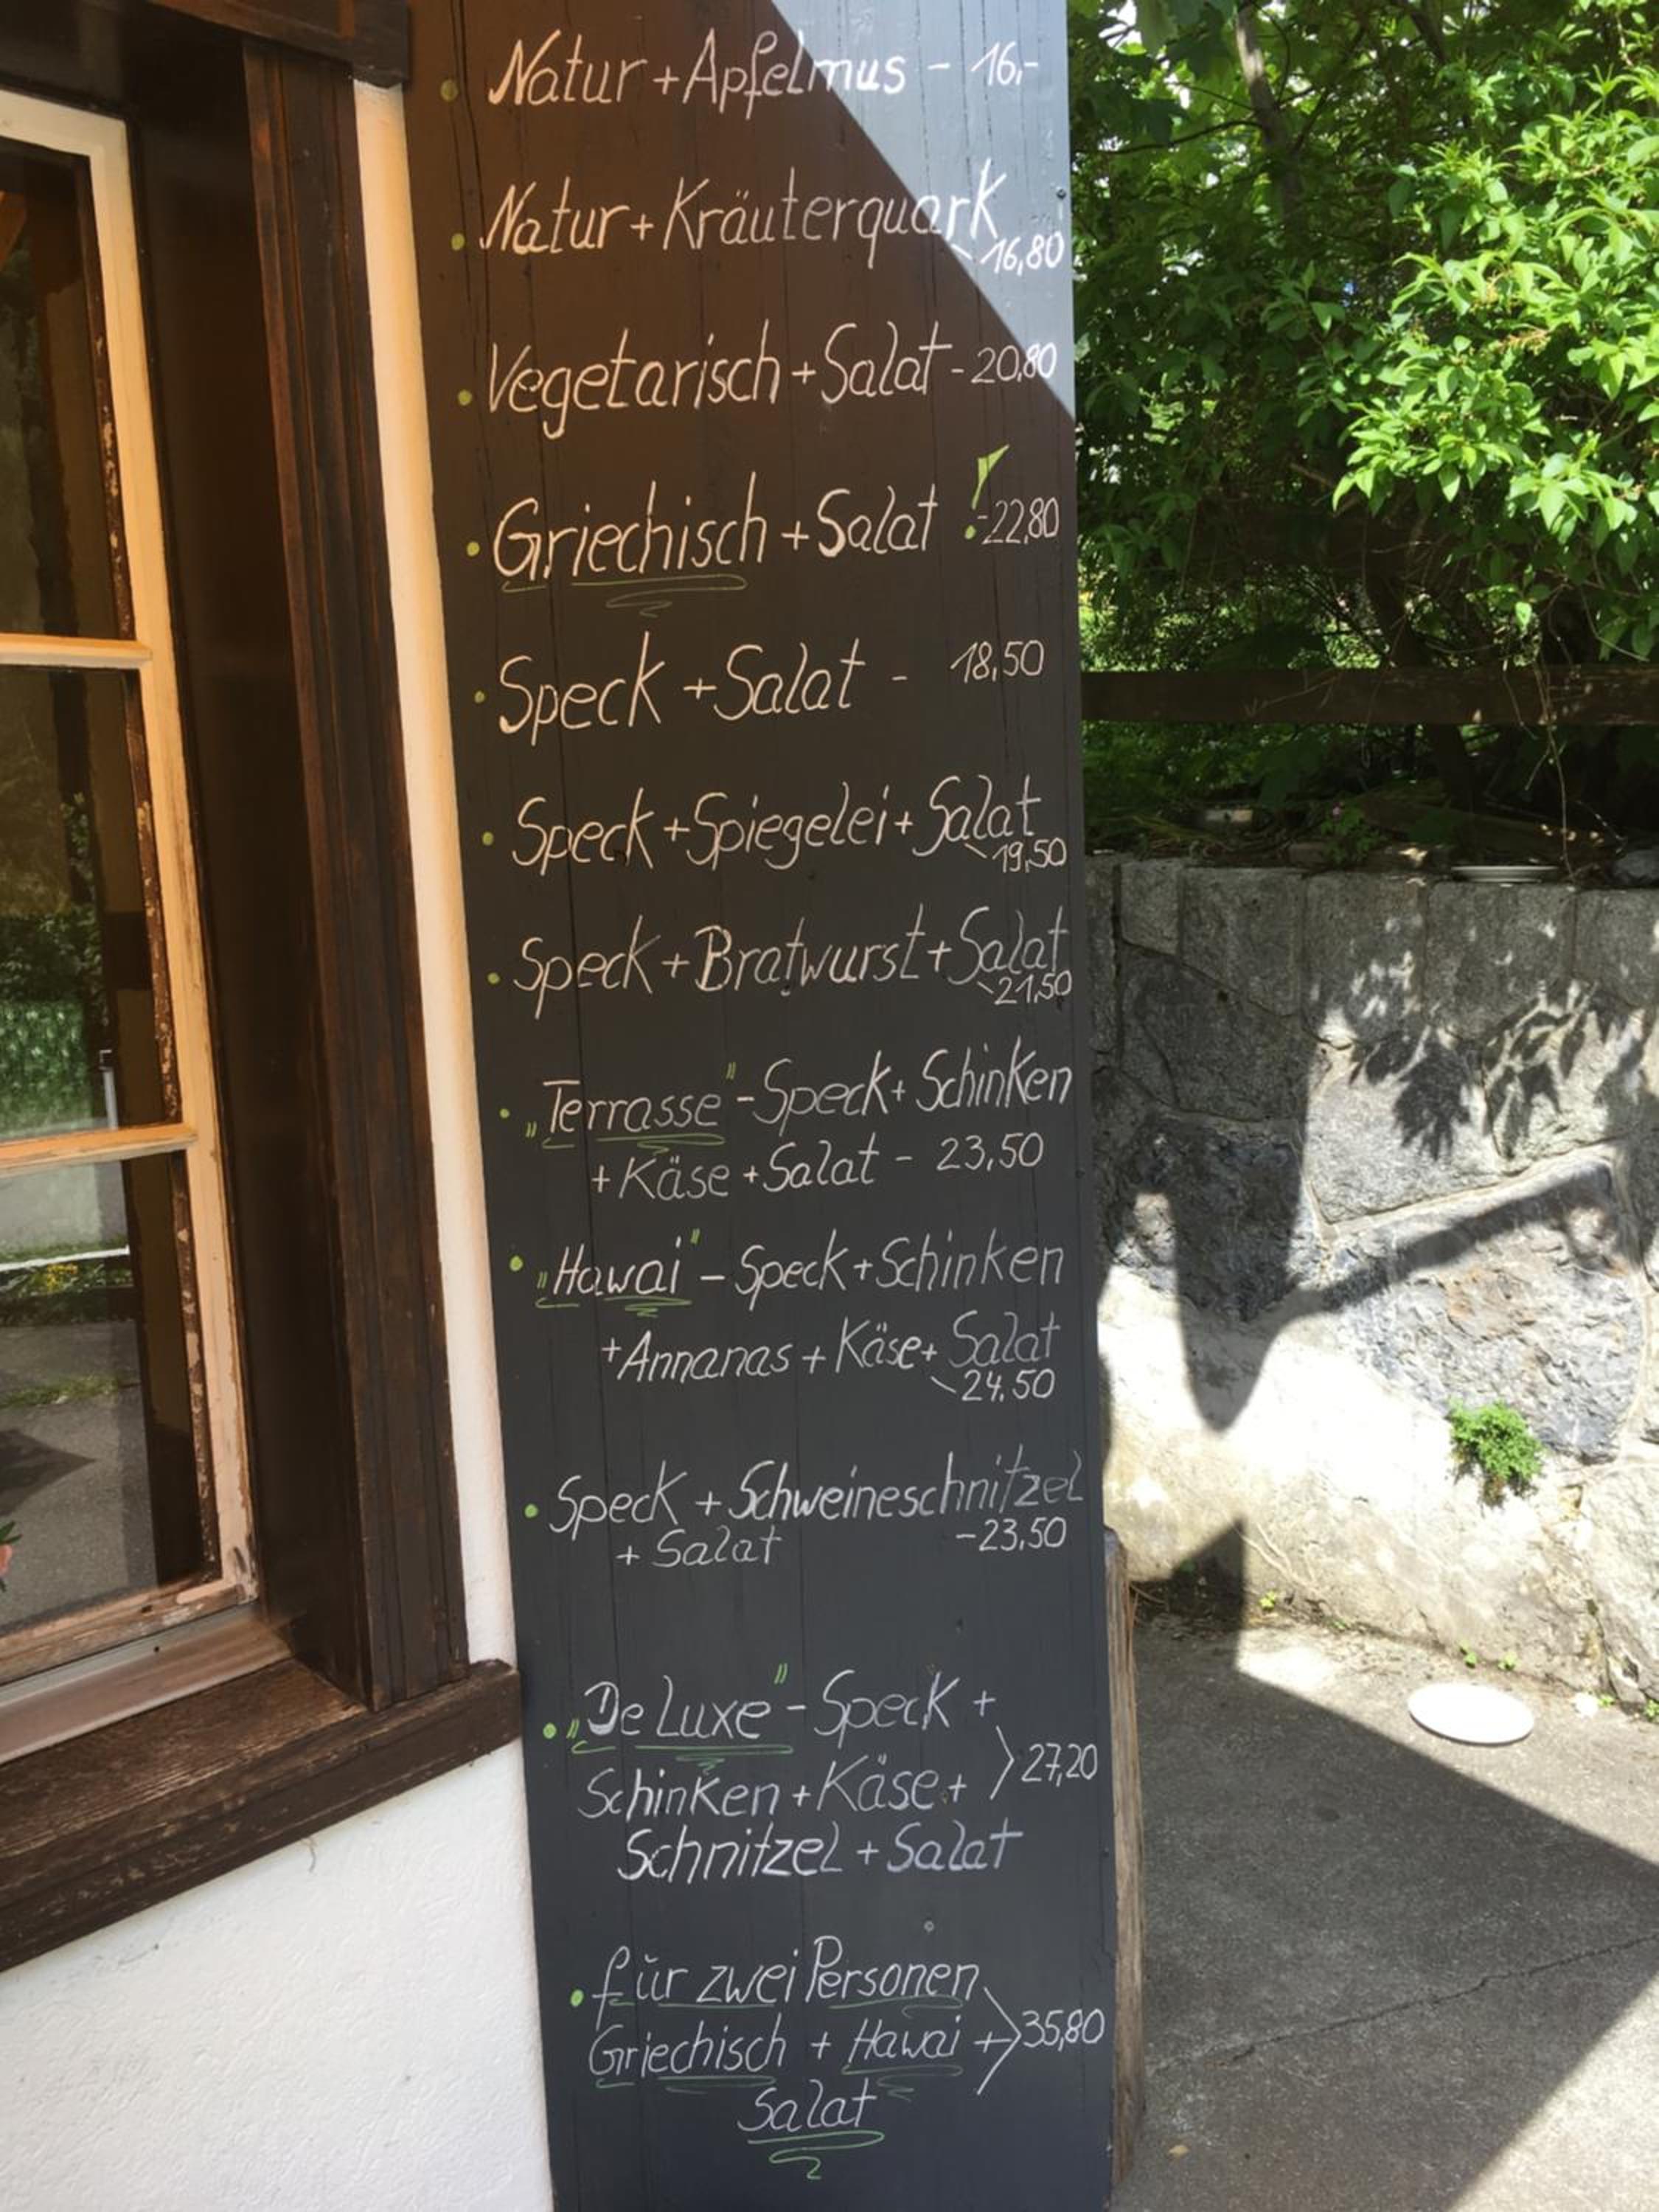 Natur + Apfelmus - 16,-
Natur + Kräuterquark
- 16,80
Vegetarisch + Salat - 20,80
Griechisch + Salat ! - 22,80
Speck + Salat - 18,50
Speck + Spiegelei + Salat
- 19,50
Speck + Bratwurst + Salat
- 21,50
„Terrasse" - Speck + Schinken
+ Käse + Salat - 23,50
„Hawai" - Speck + Schinken
+ Annanas + Käse + Salat
- 24.50
Speck + Schweineschnitzel
+ Salat - 23,50
„De Luxe" - Speck +
Schinken + Käse + 27,20
Schnitzel + Salat
für zwei Personen
Griechisch + Hawai + 35,80
Salat